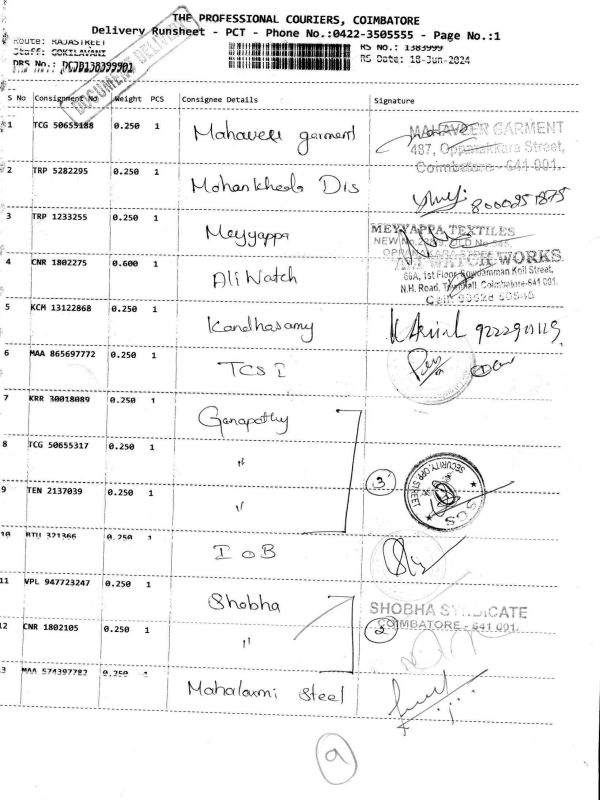 THE PROFESSIONAL COURIERS, COIMBATORE
Delivery Runsheet - PCT - Phone No.:0422-3505555 - Page No.:1
Route: RAJASTREET
RS No.: 1383999
Staff: GOKILAVANI
RS Date: 18-Jun-2024
DRS No.: PCJB138399901
DOCUMENT DELIVERY
S No Consignment No Weight PCS Consignee Details Signature
1 TCG 50655188 0.250 1 Mahaveer garment
MAHAVEER GARMENT
487, Oppanakkara Street,
Coimbatore - 641 001.
2 TRP 5282295 0.250 1 Mohankheda Dis
3 TRP 1233255 0.250 1 Meyyappa
MEYYAPPA TEXTILES
4 CNR 1802275 0.600 1 Ali Watch
WATCH WORKS
N.H. Road, Townhall, Coimbatore-641 001.
5 KCM 13122868 0.250 1 Kandhasamy
6 MAA 865697772 0.250 1 TCS I
7 KRR 30018089 0.250 1 Ganapathy
8 TCG 50655317 0.250 1 "
9 TEN 2137039 0.250 1 "
3
SECURITY, OPP STREET
SCS
10 BTU 321366 0.250 1 I O B
11 VPL 947723247 0.250 1 Shobha
SHOBHA SYNDICATE
COIMBATORE - 641 001.
12 CNR 1802105 0.250 1 "
2
3 MAA 574397782 0.250 1 Mahalaxmi Steel
9